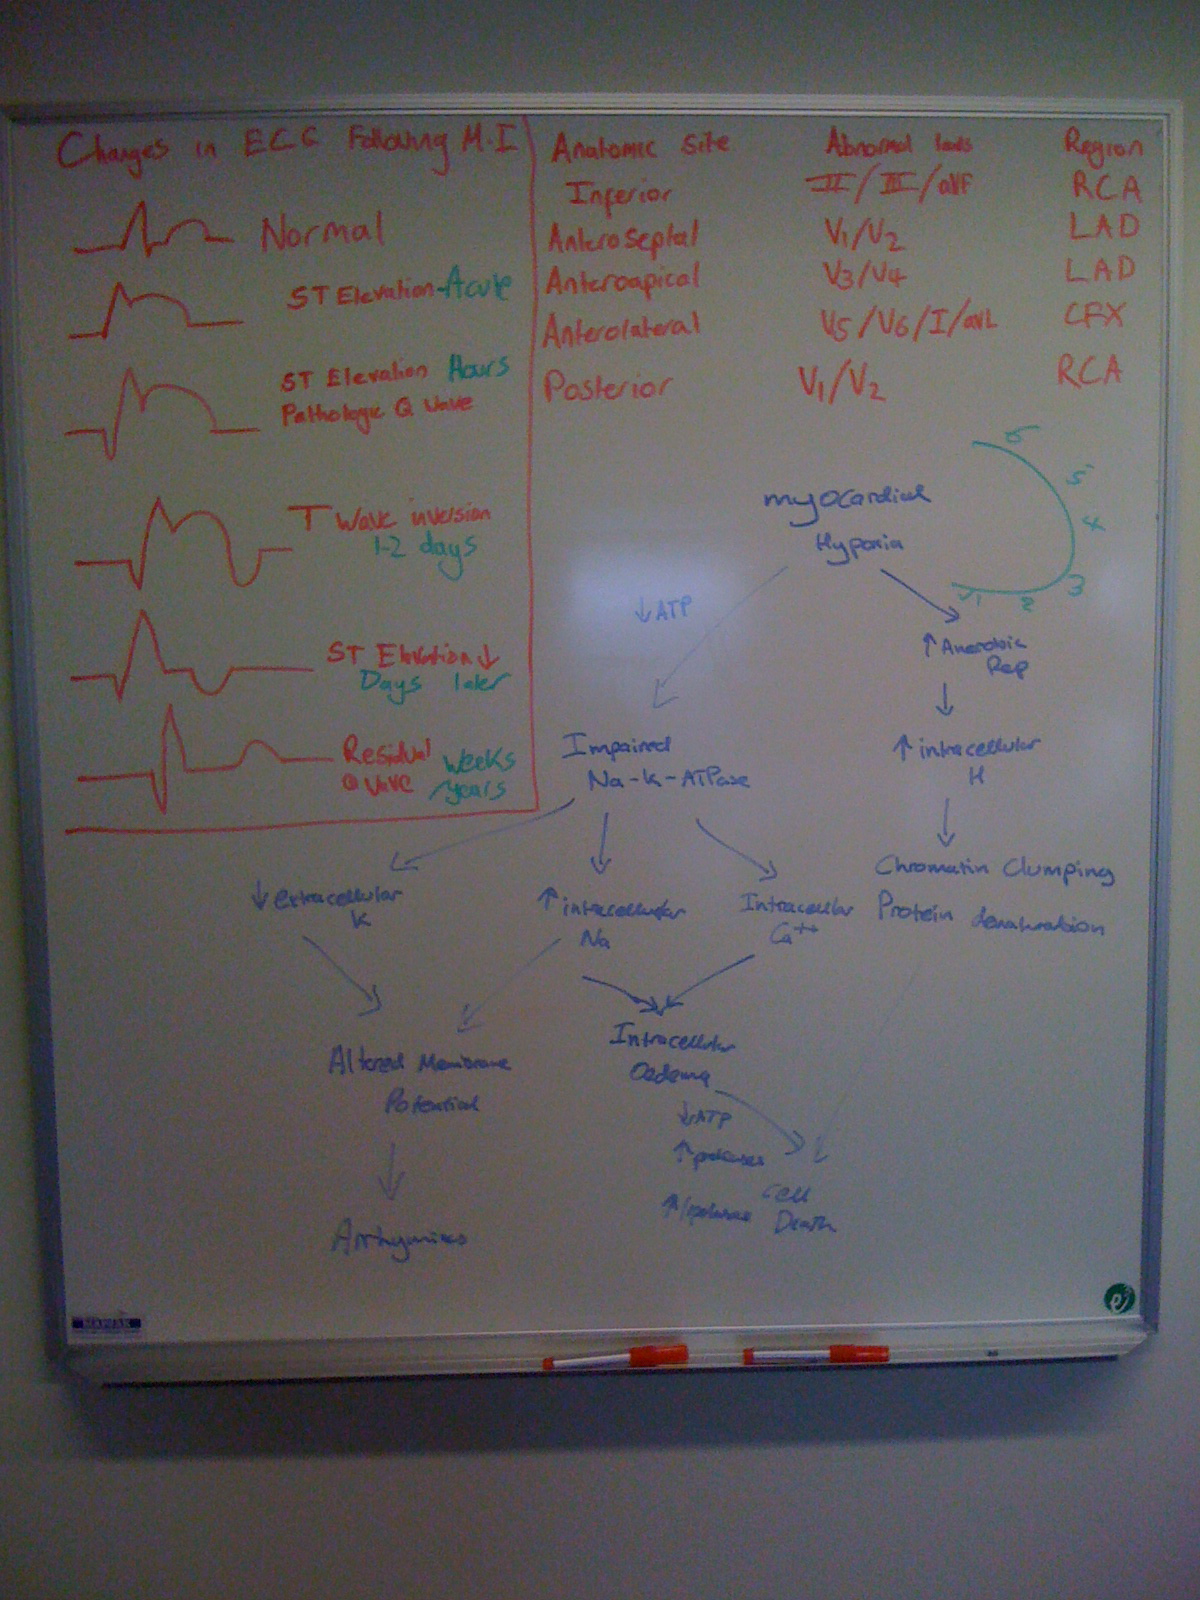 Changes in ECG Following M.I
Normal
ST Elevation-Acute
ST Elevation Hours
Pathologic Q wave
T Wave inversion
1-2 days
ST Elevation↓
Days later
Residual Weeks
Q wave /years
Anatomic Site Abnormal leads Region
Inferior II/III/aVF RCA
Anteroseptal V1/V2 LAD
Anteroapical V3/V4 LAD
Anterolateral V5/V6/I/aVL CFX
Posterior V1/V2 RCA
6
5
4
3
2
V1
myocardial
Hypoxia
↓ATP
↑Anerobic
Rep
Impaired
Na-K-ATPase
↑intracellular
H
Chromatin Clumping
Protein denaturation
↓extracellular
K
↑intracellular
Na
Intracellular
Ca++
Altered Membrane
Potential
Intracellular
Oedema
↓ATP
↑proteases
↑lipases
Cell
Death